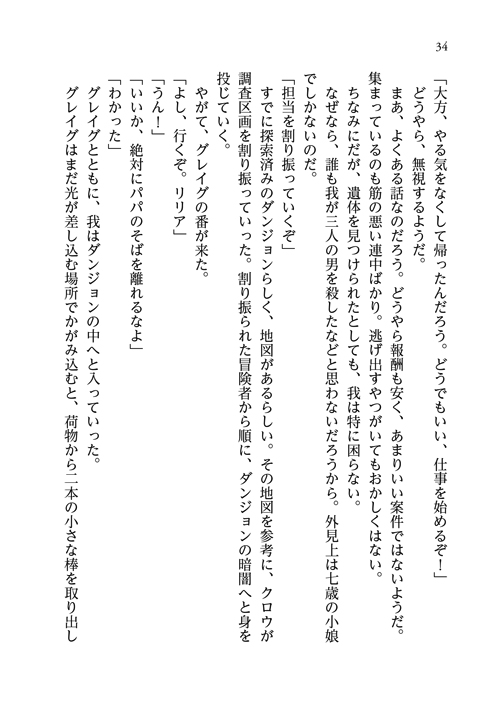 34
「大方、やる気をなくして帰ったんだろう。どうでもいい、仕事を始めるぞ！」
どうやら、無視するようだ。
まあ、よくある話なのだろう。どうやら報酬も安く、あまりいい案件ではないようだ。
集まっているのも筋の悪い連中ばかり。逃げ出すやつがいてもおかしくはない。
ちなみにだが、遺体を見つけられたとしても、我は特に困らない。
なぜなら、誰も我が三人の男を殺したなどと思わないだろうから。外見上は七歳の小娘
でしかないのだ。
「担当を割り振っていくぞ」
すでに探索済みのダンジョンらしく、地図があるらしい。その地図を参考に、クロウが
調査区画を割り振っていった。割り振られた冒険者から順に、ダンジョンの暗闇へと身を
投じていく。
やがて、グレイグの番が来た。
「よし、行くぞ。リリア」
「うん！」
「いいか、絶対にパパのそばを離れるなよ」
「わかった」
グレイグとともに、我はダンジョンの中へと入っていった。
グレイグはまだ光が差し込む場所でかがみ込むと、荷物から二本の小さな棒を取り出し